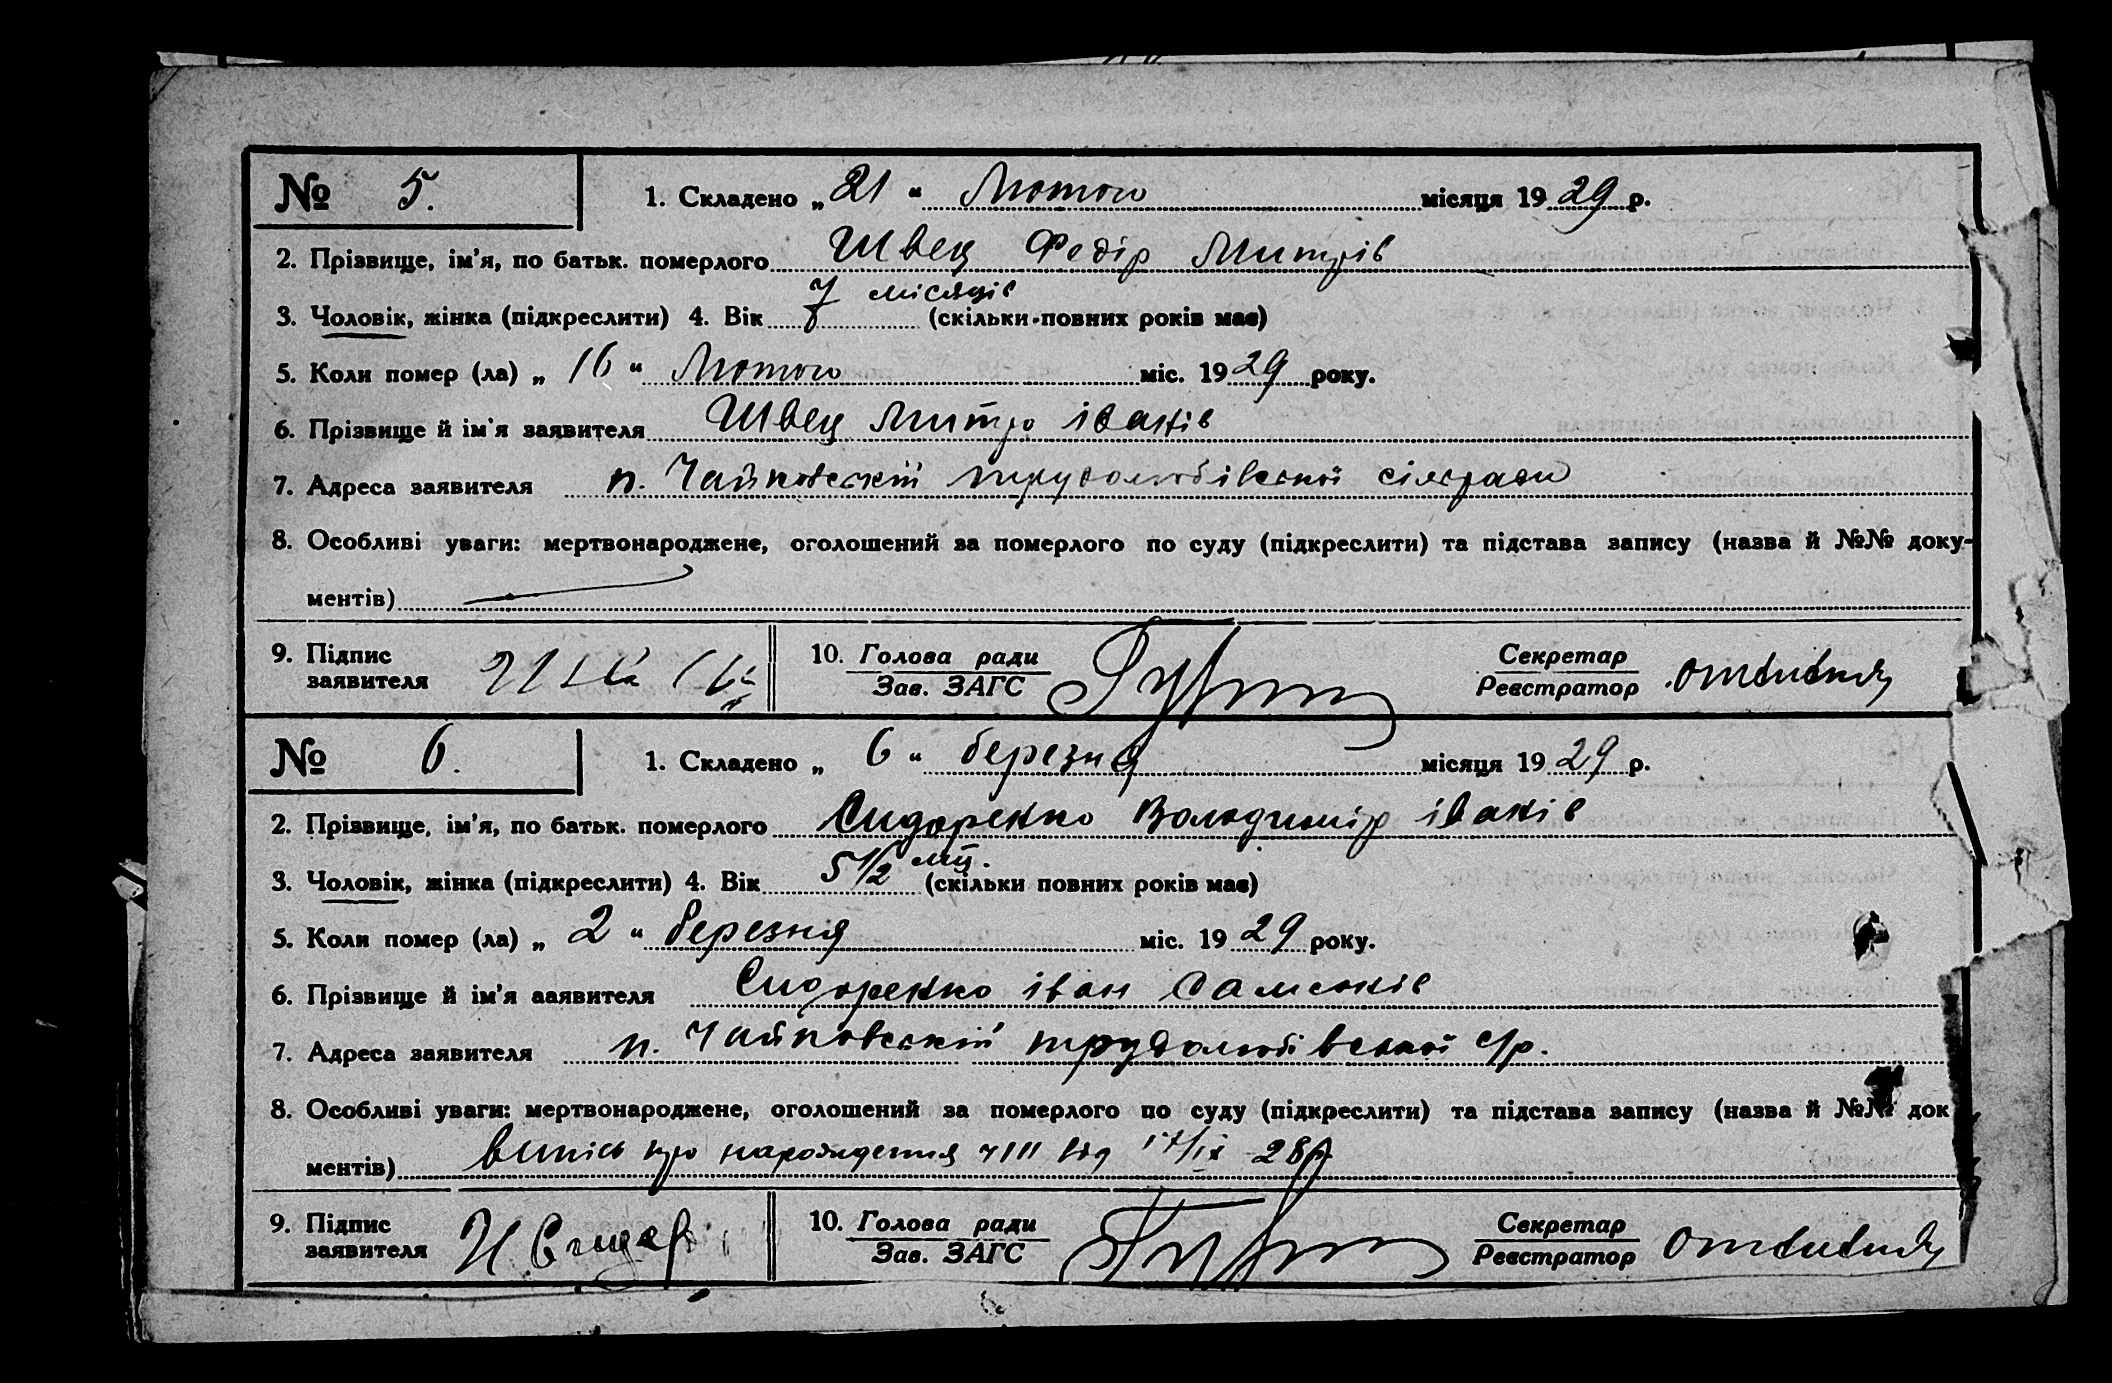 № 5. 1. Складено „ 21 “ Лютого місяця 1929 р.
2. Прізвище, ім'я, по батьк. померлого Швец Федір Митрів
7 місяців
3. Чоловік, жінка (підкреслити) 4. Вік (скільки повних років має)
5. Коли помер (ла) „ 16 “ Лютого міс. 1929 року.
6. Прізвище й ім'я заявителя Швец Митро іванів
7. Адреса заявителя п. Чайковський трудолюбівської сільради
8. Особливі уваги: мертвонароджене, оголошений за померлого по суду (підкреслити) та підстава запису (назва й №№ доку-
ментів)
9. Підпис заявителя 10. Голова ради Секретар
Зав. ЗАГС Реєстратор
№ 6. 1. Складено „ 6 “ березня місяця 1929 р.
2. Прізвище, ім'я, по батьк. померлого Сидоренко Володимір іванів
3. Чоловік, жінка (підкреслити) 4. Вік 5 1/2 мц. (скільки повних років має)
5. Коли помер (ла) „ 2 “ березня міс. 1929 року.
6. Прізвище й ім'я заявителя Сидоренко іван
7. Адреса заявителя п. Чайковський трудолюбівської с/р.
8. Особливі уваги: мертвонароджене, оголошений за померлого по суду (підкреслити) та підстава запису (назва й №№ док
ментів) випись про народження 28р
9. Підпис заявителя И Сидор 10. Голова ради Секретар
Зав. ЗАГС Реєстратор